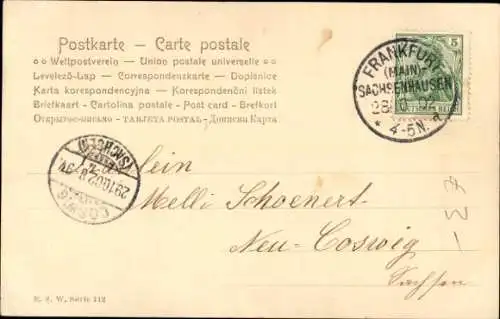 Postkarte — Carte postale
Weltpostverein — Union postale universelle
Levelező-Lap — Correspondenzkarte — Dopisnice
Karta korespondencyjna — Korespondenční lístek
Briefkaart — Cartolina postale - Post card - Brefkort
Открытое письмо - TARJETA POSTAL - Дописна Карта
5
FRANKFURT
(MAIN)-
SACHSENHAUSEN
* 4-5 N. a
COSWIG
(SACHSEN)
29.10.02.
Melli Schoenert
Neu-Coswig
Sachsen
R. S. W. Serie 112